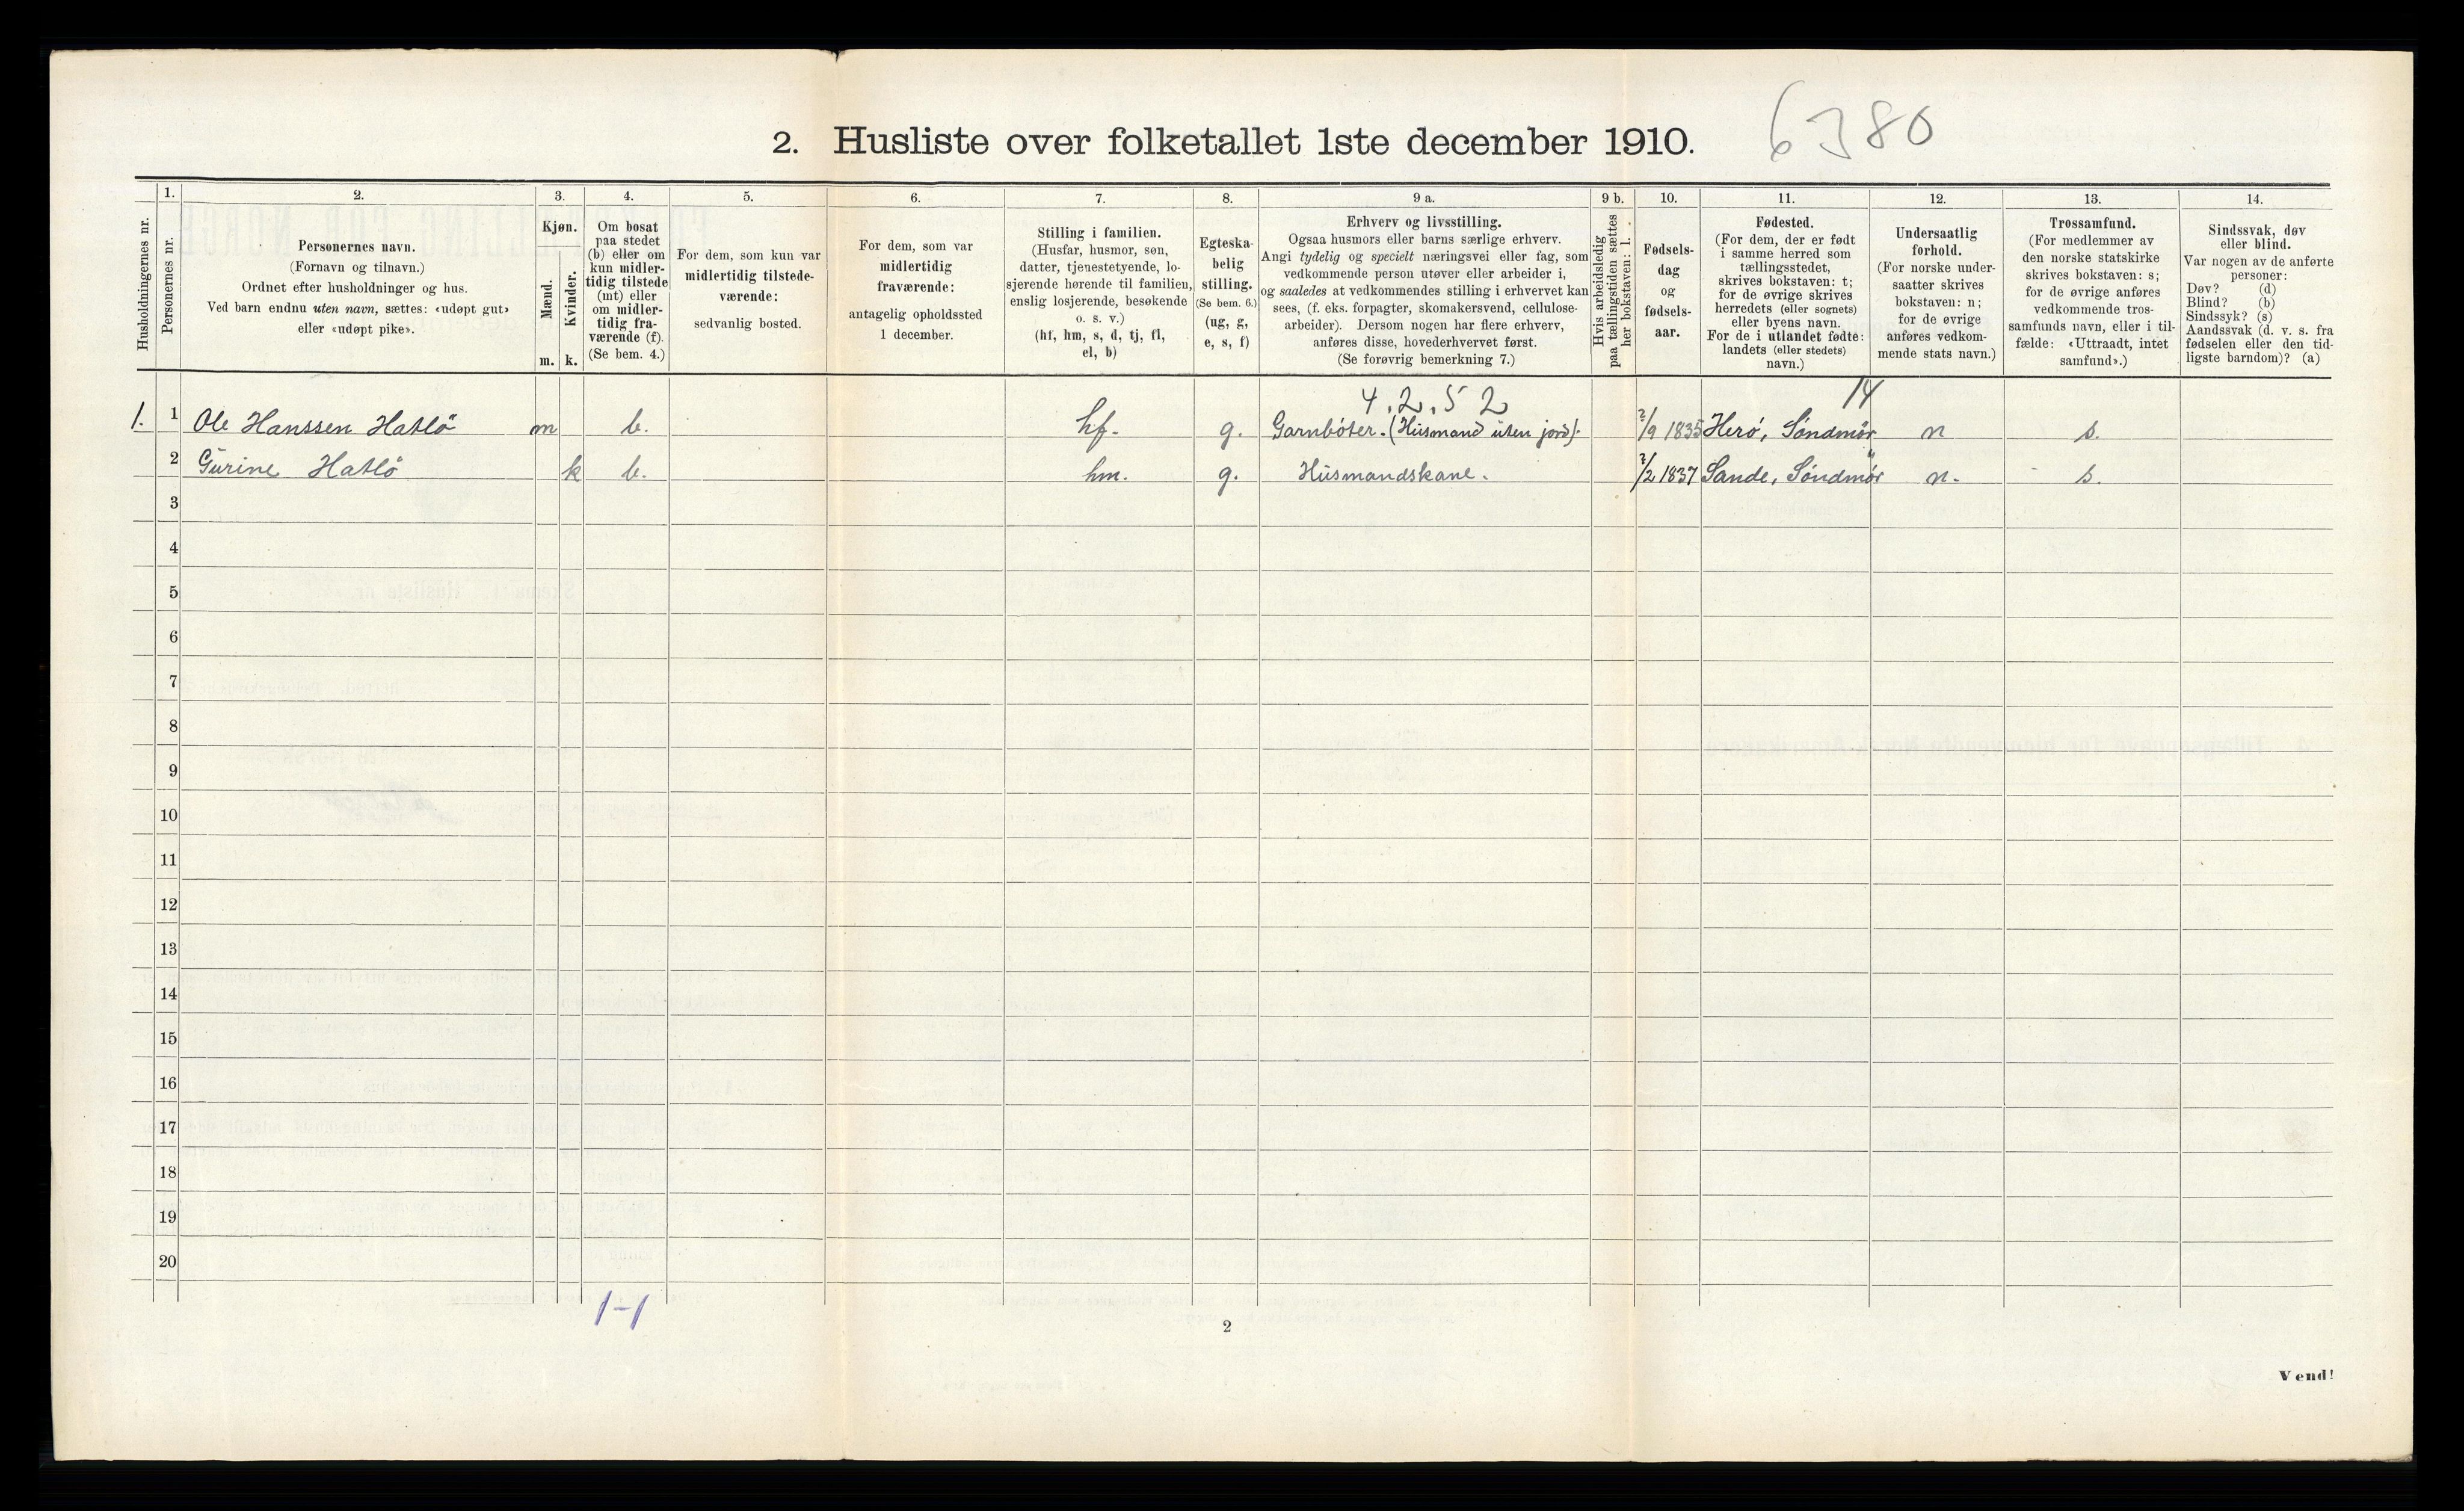 2. Husliste over folketallet 1ste december 1910.
6380
Husholdningernes nr.
1.
Personernes nr.
2.
Personernes navn.
(Fornavn og tilnavn.)
Ordnet efter husholdninger og hus.
Ved barn endnu uten navn, sættes: «udøpt gut»
eller «udøpt pike».
3.
Kjøn.
Mænd.
Kvinder.
m. k.
4.
Om bosat
paa stedet
(b) eller om
kun midler-
tidig tilstede
(mt) eller
om midler-
tidig fra-
værende (f).
(Se bem. 4.)
5.
For dem, som kun var
midlertidig tilstede-
værende:
sedvanlig bosted.
6.
For dem, som var
midlertidig
fraværende:
antagelig opholdssted
1 december.
7.
Stilling i familien.
(Husfar, husmor, søn,
datter, tjenestetyende, lo-
sjerende hørende til familien,
enslig losjerende, besøkende
o. s. v.)
(hf, hm, s, d, tj, fl,
el, b)
8.
Egteska-
belig
stilling.
(Se bem. 6.)
(ug, g,
e, s, f)
9 a.
Erhverv og livsstilling.
Ogsaa husmors eller barns særlige erhverv.
Angi tydelig og specielt næringsvei eller fag, som
vedkommende person utøver eller arbeider i,
og saaledes at vedkommendes stilling i erhvervet kan
sees, (f. eks. forpagter, skomakersvend, cellulose-
arbeider). Dersom nogen har flere erhverv,
anføres disse, hovederhvervet først.
(Se forøvrig bemerkning 7.)
9 b.
Hvis arbeidsledig
paa tællingstiden sættes
her bokstaven: l.
10.
Fødsels-
dag
og
fødsels-
aar.
11.
Fødested.
(For dem, der er født
i samme herred som
tællingsstedet,
skrives bokstaven: t;
for de øvrige skrives
herredets (eller sognets)
eller byens navn.
For de i utlandet fødte:
landets (eller stedets)
navn.)
12.
Undersaatlig
forhold.
(For norske under-
saatter skrives
bokstaven: n;
for de øvrige
anføres vedkom-
mende stats navn.)
13.
Trossamfund.
(For medlemmer av
den norske statskirke
skrives bokstaven: s;
for de øvrige anføres
vedkommende tros-
samfunds navn, eller i til-
fælde: «Uttraadt, intet
samfund».)
14.
Sindssvak, døv
eller blind.
Var nogen av de anførte
personer:
Døv? (d)
Blind? (b)
Sindssyk? (s)
Aandssvak (d. v. s. fra
fødselen eller den tid-
ligste barndom)? (a)
4.2.52 14
1. 1 Ole Hanssen Hatlö m b. hf. g. Garnbóter. (Húsmand úten jord). ?/9 1835 Heró, Sóndmór n s.
2 Gúrine Hatló k b. hm. g. Húsmandskane. ?/2 1837 Sande, Sóndmór n. s.
3
4
5
6
7
8
9
10
11
12
13
14
15
16
17
18
19
20
1-1
2
Vend!